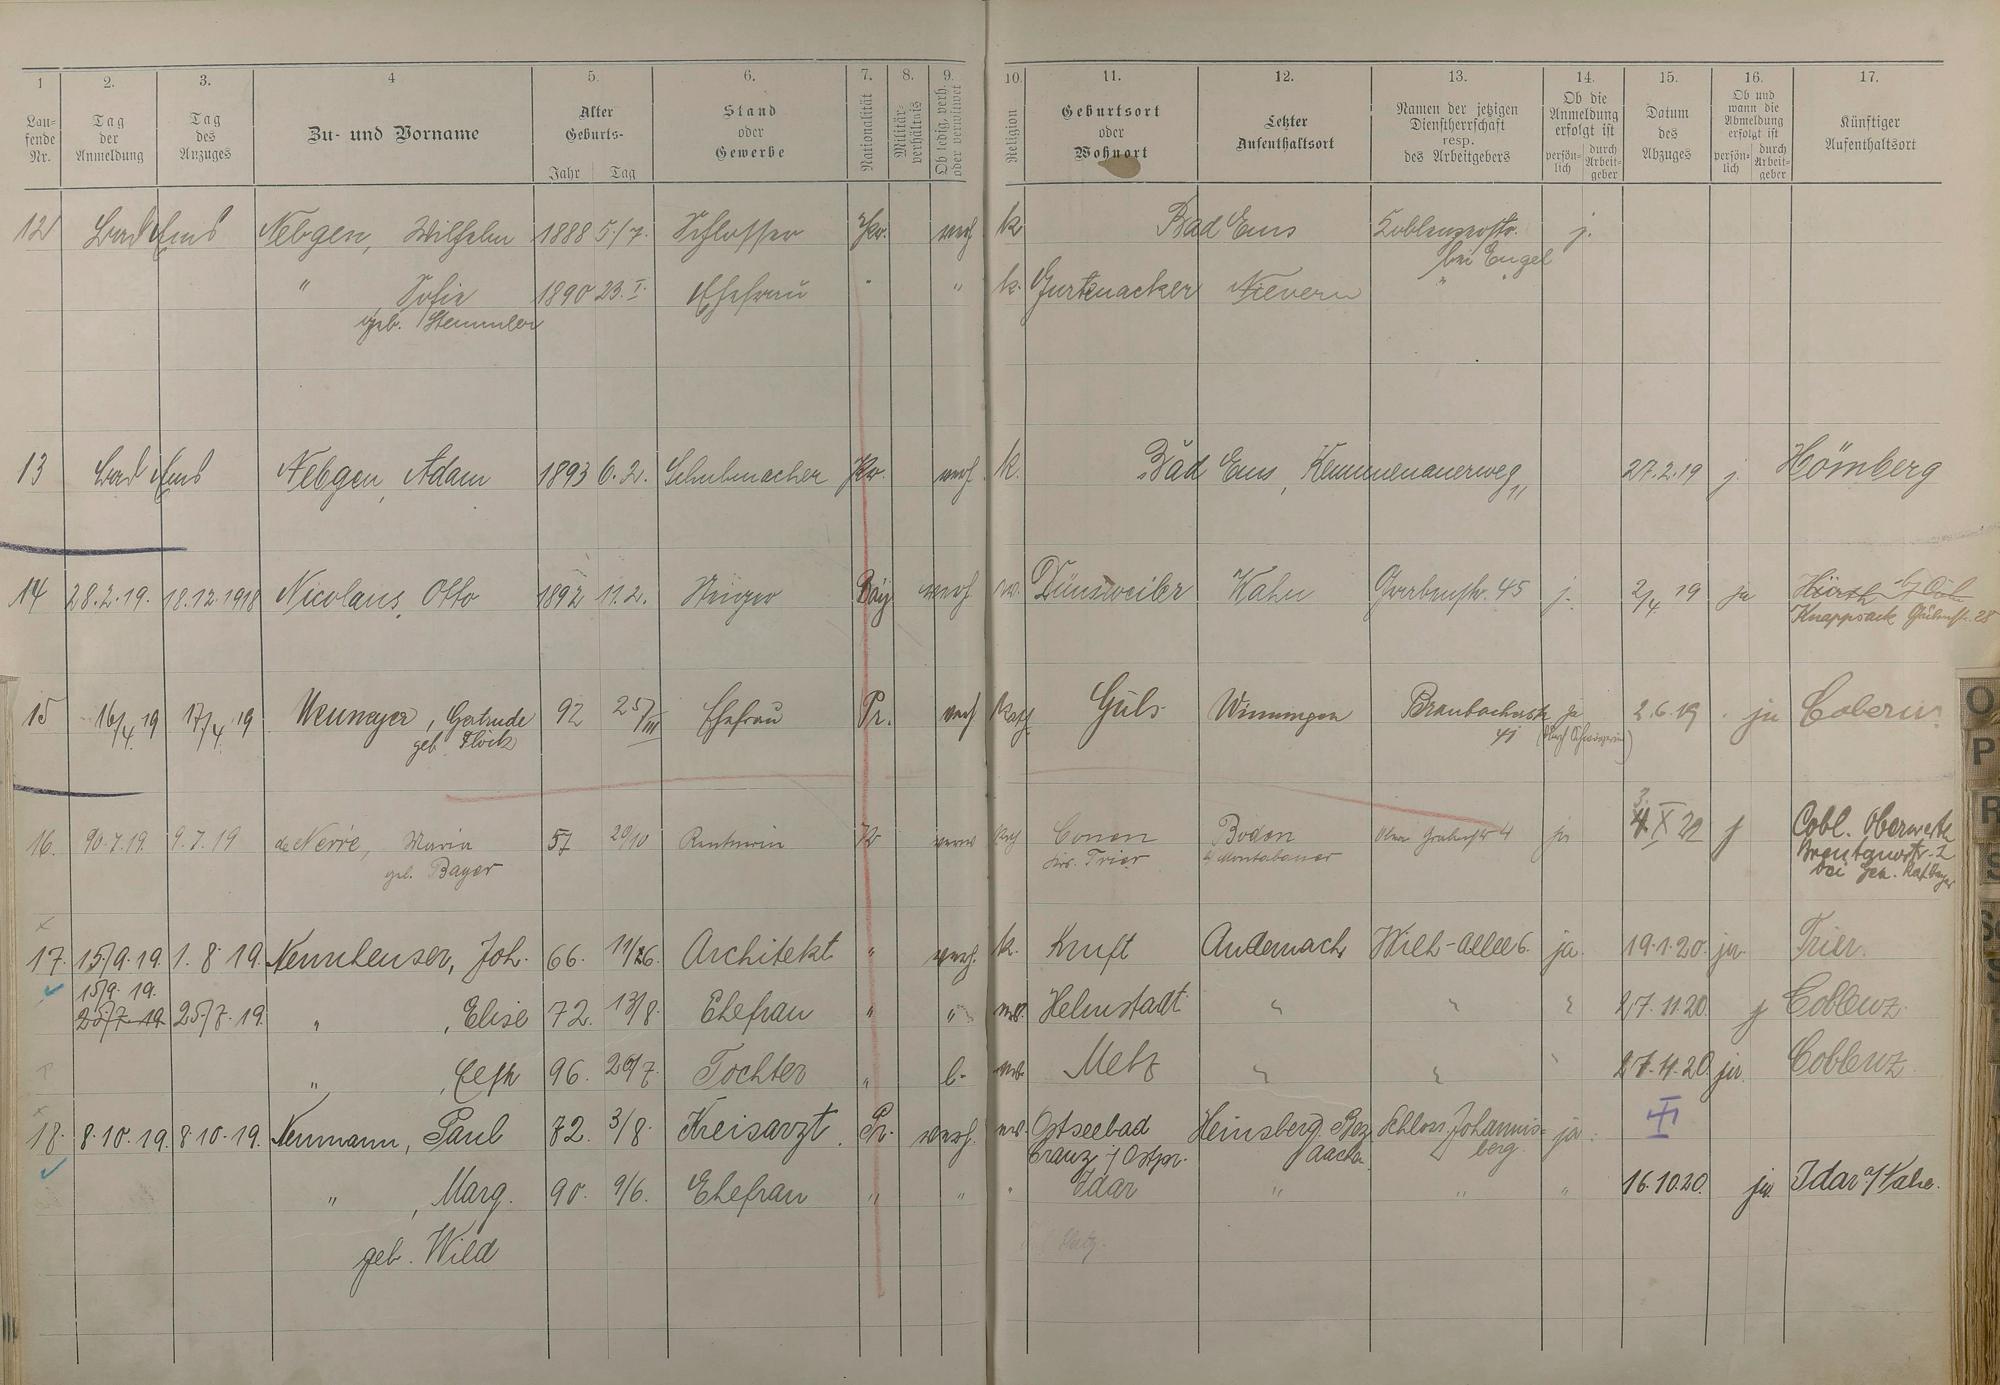 1
2.
3.
4
5.
6.
7.
8.
9.
10.
11.
12.
13.
14.
15.
16.
17.
Lau-
fende
Nr.
Tag
der
Anmeldung
Tag
des
Anzuges
Zu- und Vorname
Alter
Geburts-
Jahr Tag
Stand
oder
Gewerbe
Nationalität
Militär-
verhältnis
Ob ledig, verh.
oder verwitwet
Religion
Geburtsort
oder
Wohnort
Letzter
Aufenthaltsort
Namen der jetzigen
Dienstherrschaft
resp.
des Arbeitgebers
Ob die
Anmeldung
erfolgt ist
persön-
lich
durch
Arbeit-
geber
Datum
des
Abzuges
Ob und
wann die
Abmeldung
erfolgt ist
persön-
lich
durch
Arbeit-
geber
Künftiger
Aufenthaltsort
12 Bad Ems Nebgen, Wilhelm 1888 5./7. Schlosser Pr. verh k Bad Ems Coblenzerstr. j.
bei Engel
" Sofie 1890 23. I. Ehefrau " " k. Gutenacker Nievern " "
geb. Stemmler
13 Bad Ems Nebgen, Adam 1893 6. 2. Schuhmacher Pr. verh. k. Bad Ems, Kemmenauerweg 11 27.2.19 j. Hömberg
14 28.2.19. 18.12.1918 Nicolaus, Otto 1892 11.2. Steiger Bay verh Dünsweiler Kahn 45 j. 2/4 19 ja Hürth
Knappsack 28
15 16/4 19 17/4 19 Neumeyer, Gertrude 92 25/III Ehefrau Pr. verh Kath Güls Winningen Braubacherstr ja 2.6.19 ja Cobern
geb. Flöck 41
16. 9.7.19 de Nerré, Maria 57 20/10 Rentnerin Pr Kath Conen Boden 4 ja X 22 j Cobl. Oberwerth
geb. Bayer Krs. Trier b/ Montabaur Brentanostr. 2
bei
17. 15/9.19. 1.8.19. Nennheuser, Joh. 66. 11/26. Architekt " verh. k. Kruft Andernach Wilh-allee 6. ja. 19.1.20. ja. Trier.
15/9. 19.
25/7.19. 25/7.19. " , Elise 72. 13/8. Ehefrau " " Helmstadt " " " 27.11.20. j Coblenz.
" 96. 29/7. Tochter " l. Metz " " " 27.11.20. ja. Coblenz
18. 8.10.19. 8.10.19. Neumann, Paul 72. 3/8. Kreisarzt. Pr. verh. Ostseebad Heinsberg Bez Schloss Johannis- ja.
Cranz i/ Ostpr. Aachen berg.
" , Marg. 90. 9/6. Ehefrau " " " Idar " " " 16.10.20. ja. Idar a/Nahe.
geb. Wild
O
P
R
S